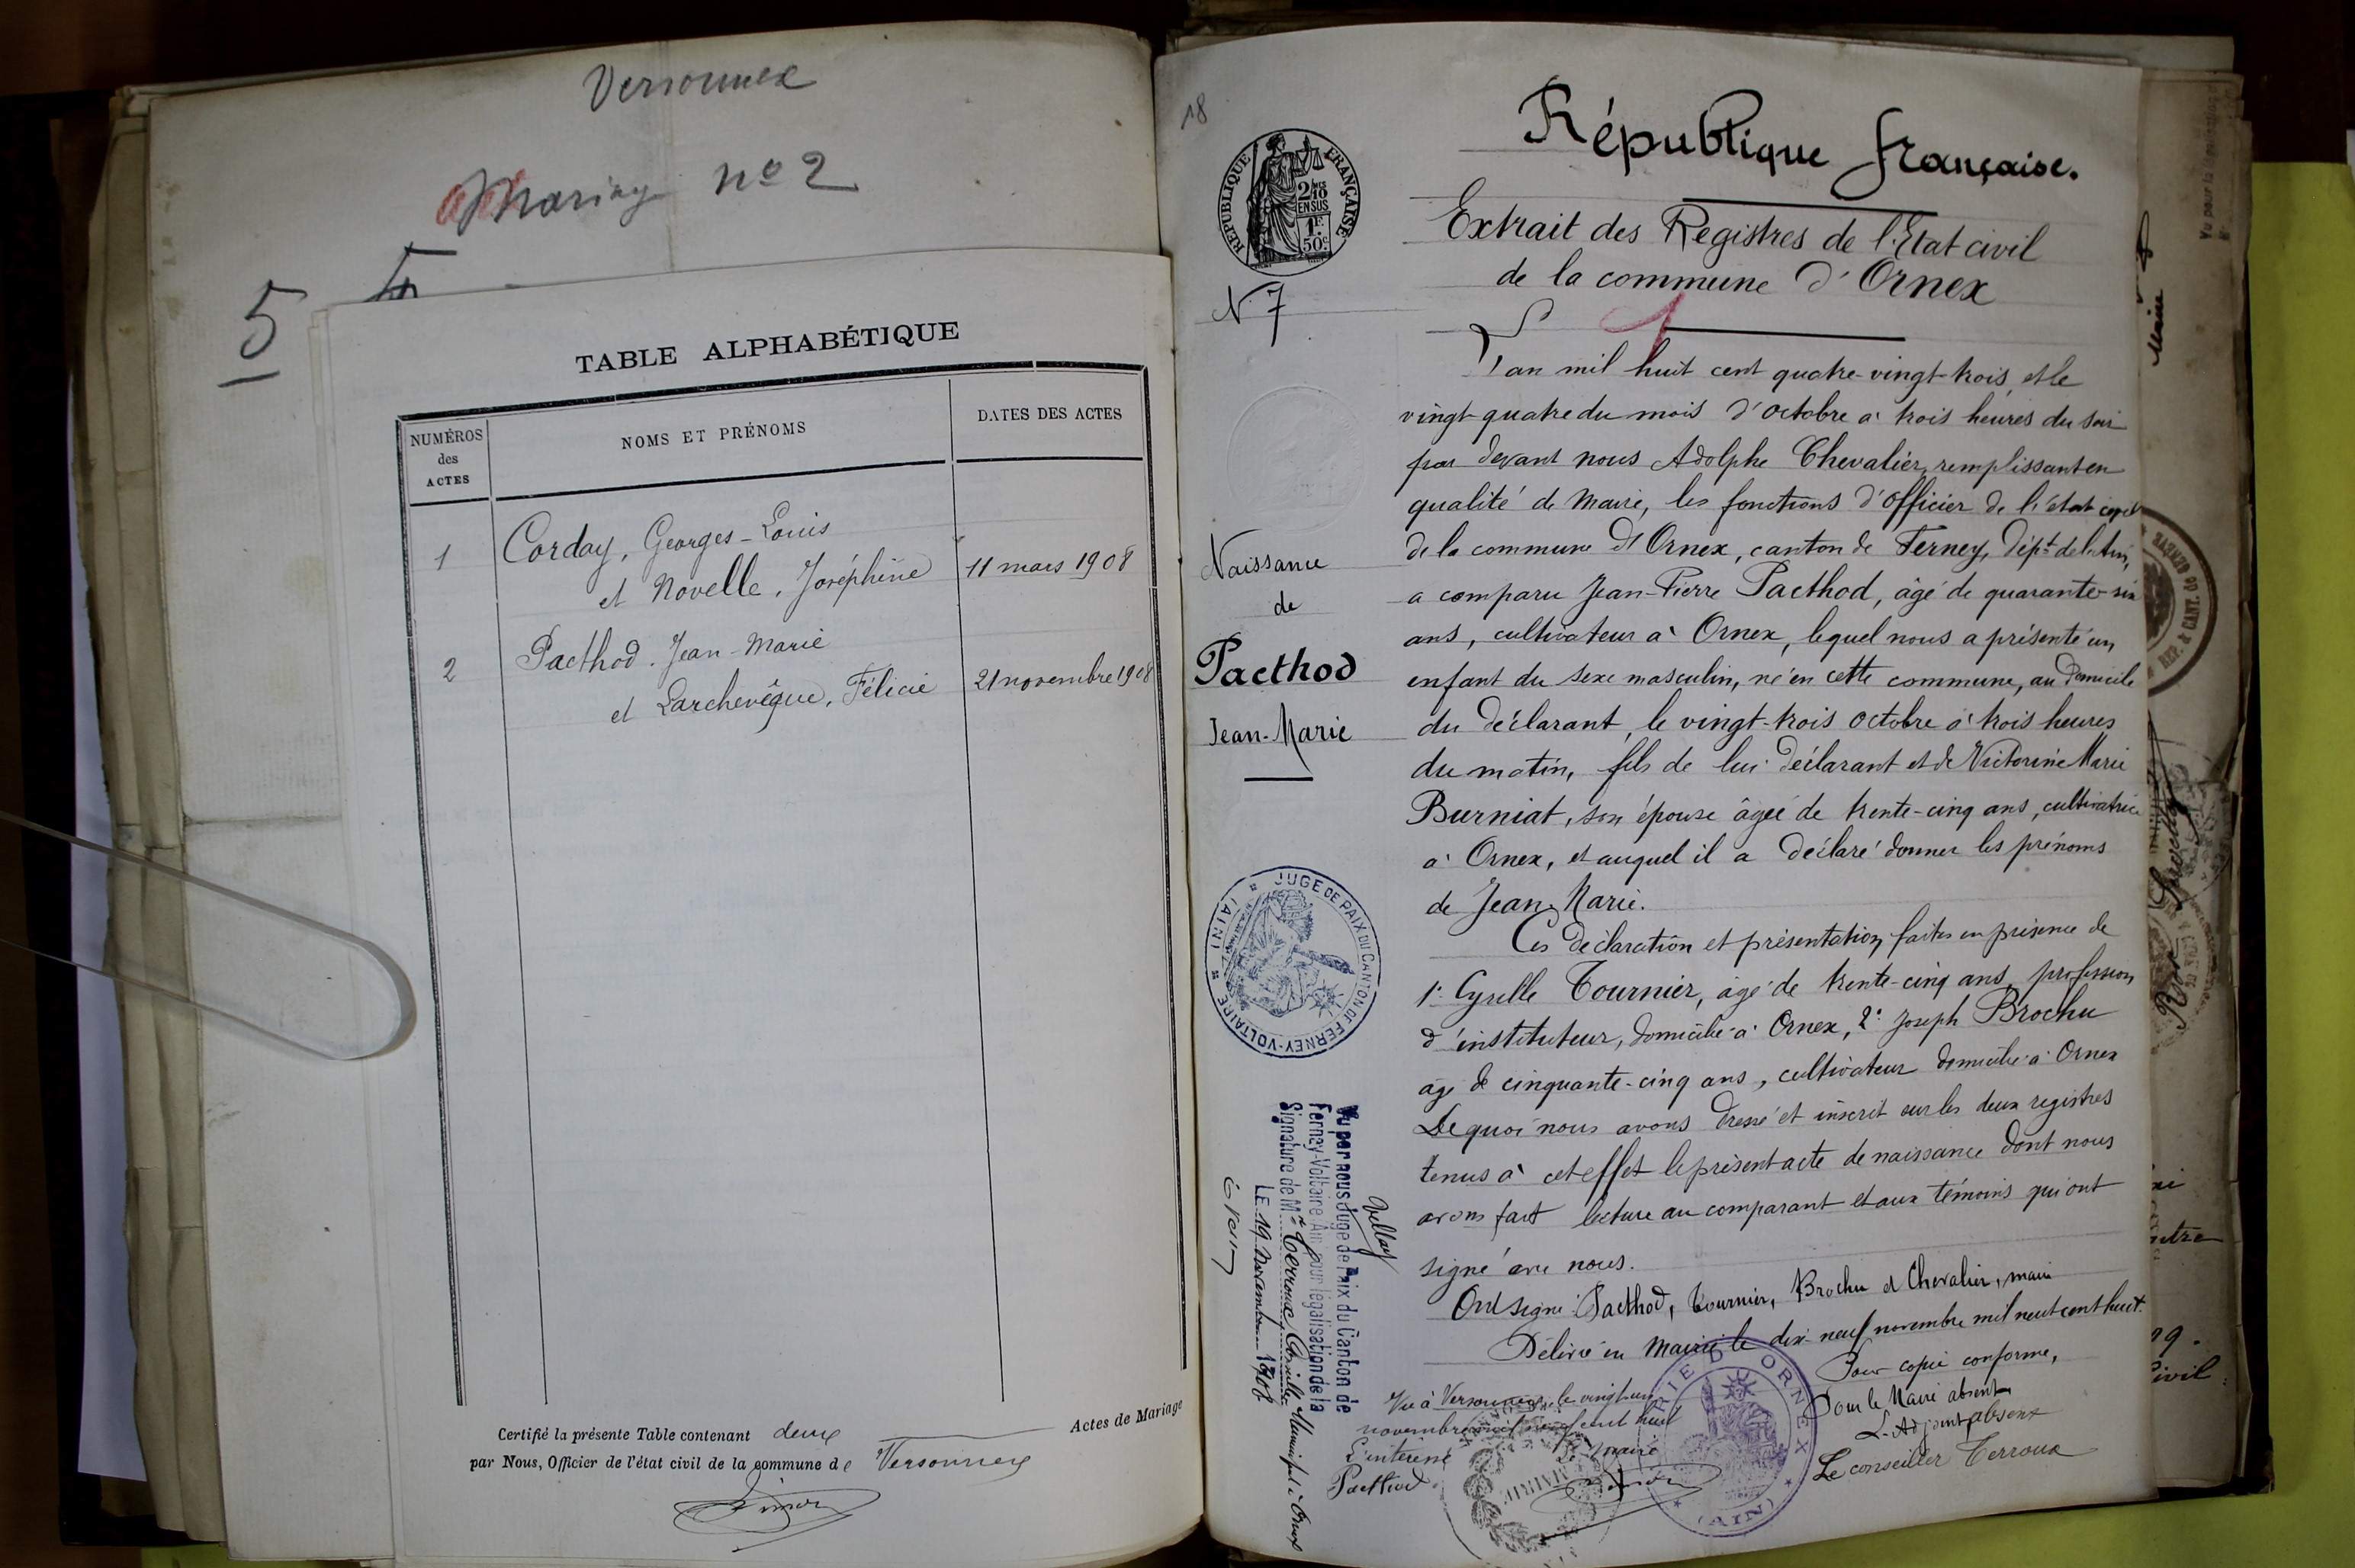 Versonnex
Mariage nº 2
5
TABLE ALPHABÉTIQUE
NUMÉROS
des
ACTES
NOMS ET PRÉNOMS
DATES DES ACTES
1
Corday, Georges-Louis
et Novelle, Joséphine
11 mars 1908
2
Pacthod. Jean-Marie
et Larchevêque, Félicie
21 novembre 1908
Certifié la présente Table contenant deux
Actes de Mariage
par Nous, Officier de l'état civil de la commune de Versonnex
18
REPUBLIQUE FRANÇAISE
2/10
EN SUS
1F.
50c
N. 7
République française.
Extrait des Registres de l'Etat civil
de la commune d'Ornex
1
L'an mil huit cent quatre-vingt-trois, et le
vingt quatre du mois d'octobre à trois heures du soir
par devant nous Adolphe Chevalier, remplissant en
qualité de Maire, les fonctions d'officier de l'état civil
de la commune d'Ornex, canton de Ferney, dépt de l'Ain,
a comparu Jean-Pierre Pacthod, âgé de quarante-six
ans, cultivateur à Ornex, lequel nous a présenté un
enfant du sexe masculin, né en cette commune, au domicile
du déclarant, le vingt-trois octobre à trois heures
du matin, fils de lui déclarant et de Victorine Marie
Burniat, son épouse âgée de trente-cinq ans, cultivatrice
à Ornex, et auquel il a déclaré donner les prénoms
de Jean-Marie.
Ces déclaration et présentation faites en présence de
1º Cyrille Tournier, âgé de trente-cinq ans, profession
d'instituteur, domicilié à Ornex, 2º Joseph Brochu
âgé de cinquante-cinq ans, cultivateur domicilié à Ornex
De quoi nous avons dressé et inscrit sur les deux registres
tenus à cet effet le présent acte de naissance dont nous
avons fait lecture au comparant et aux témoins qui ont
signé avec nous.
Ont signé: Pacthod, Tournier, Brochu et Chevalier, maire
Délivré en Mairie le dix-neuf novembre mil neuf cent huit.
Pour copie conforme,
Pour le Maire absent
L'Adjoint absent
Le conseiller Terroux
Naissance
de
Pacthod
Jean-Marie
JUGE DE PAIX DU CANTON DE FERNEY-VOLTAIRE (AIN)
Vu par nous Juge de Paix du Canton de
Ferney-Voltaire Ain pour légalisation de la
Signature de Mr Terroux Conseiller Municipal à Ornex
LE 19 Novembre 1908
Vu à Versonnex, le vingt un
novembre mil neuf cent huit
L'intéressé
Le maire
Pacthod
MAIRIE D'ORNEX (AIN)
MAIRIE
REP. & CANT. DE GENEVE